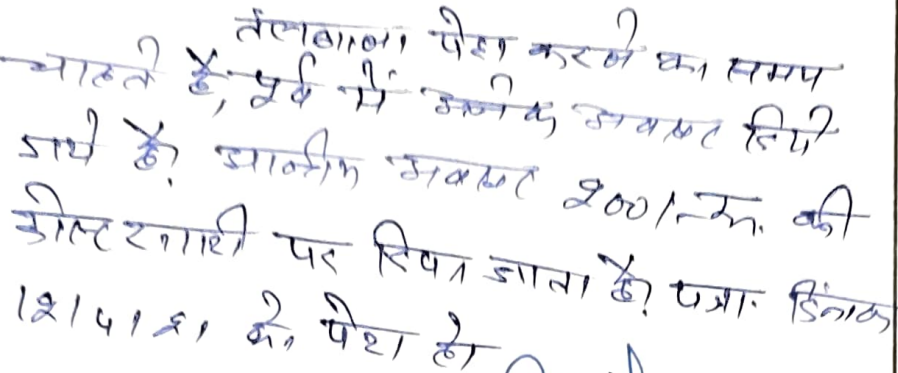 तलबाना पेश करने का समय
चाहते है, पूर्व में अनेक अवसर दिये
गये है। अन्तिम अवसर 200/-रू. की
कोस्ट राशी पर दिया जाता है। पत्रा. दिनांक
12/4/21 को पेश हो